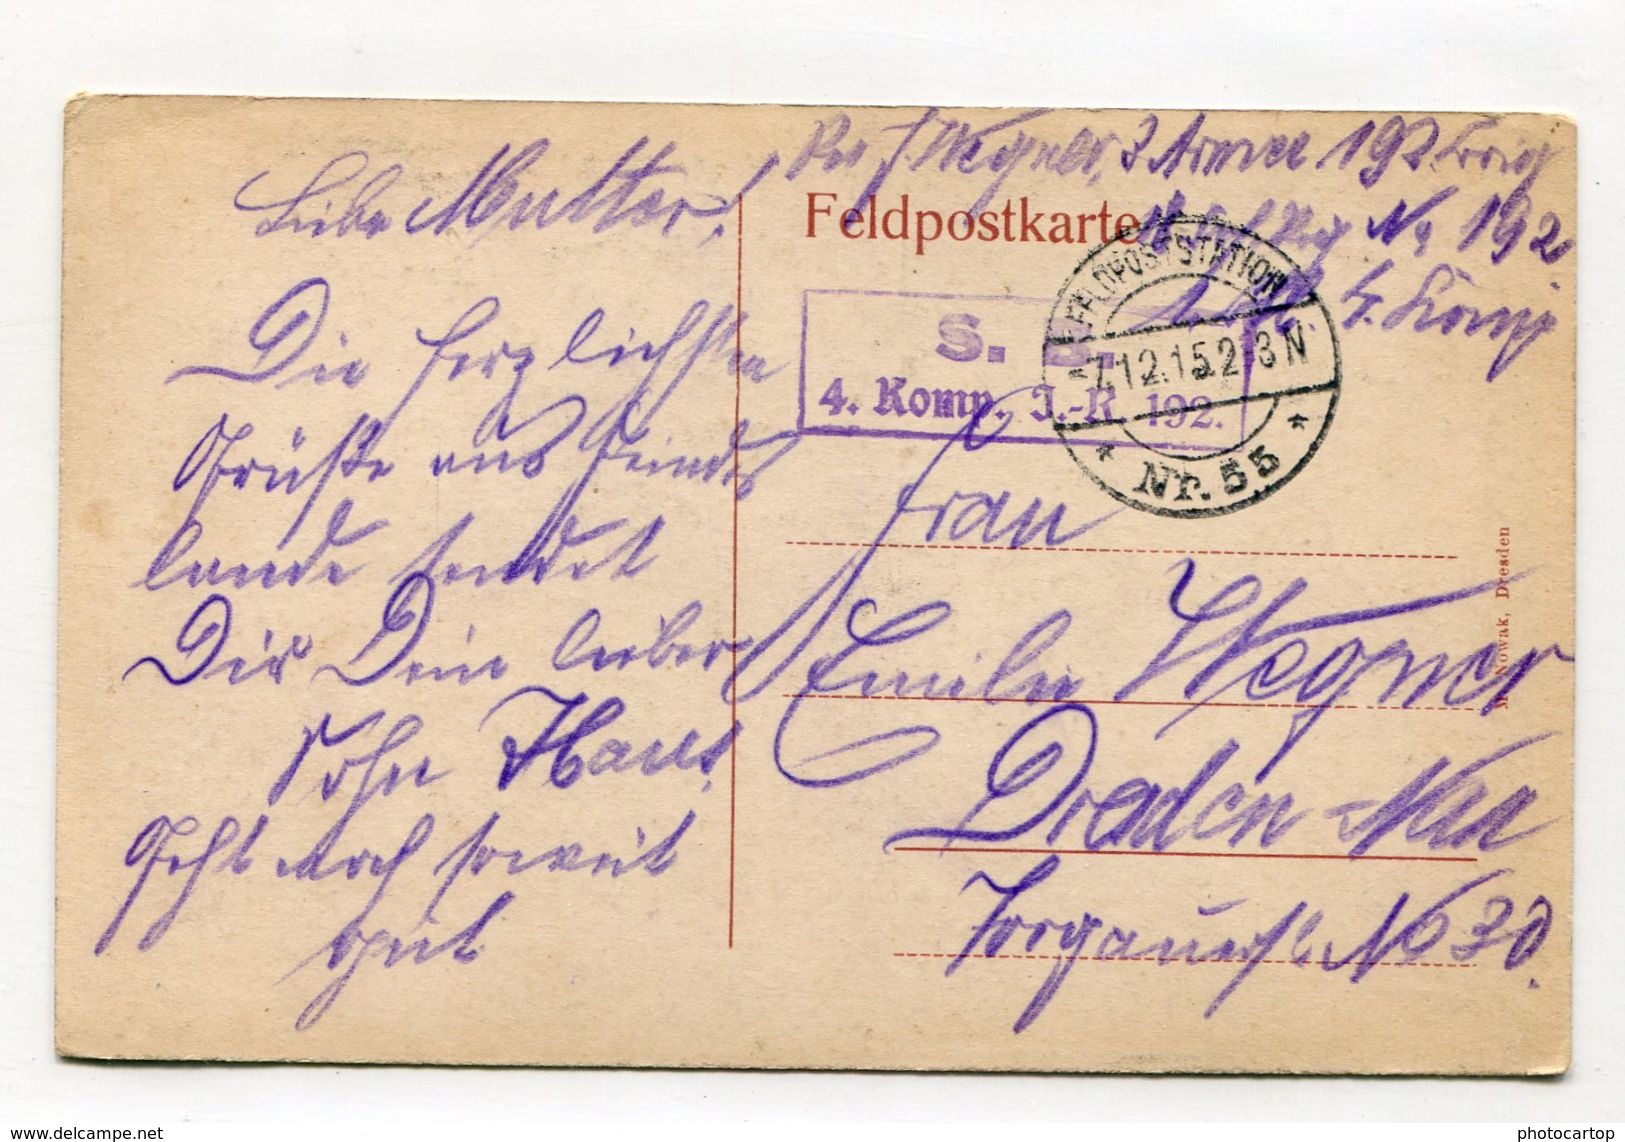 Liebe Mutter!
Die herzlichsten
Grüße aus Feindes
lande sendet
Dir Dein lieber
Sohn Hans.
Geht noch soweit
gut
Wegner, 3 Armee 192.
Feldpostkarte
No 192
4. Komp
S. B.
4. Komp., J.-R. 192.
FELDPOSTSTATION
7.12.15. 2-3 N
* Nr. 55 *
Frau
Emilie Wegner
Dresden-Neu
Torgauerst. No 30.
M. Nowak, Dresden
www.delcampe.net
photocartop